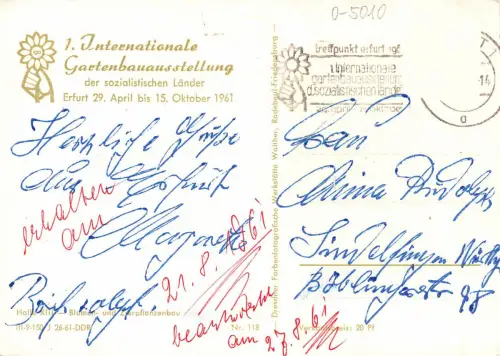 0-5010
1. Internationale
Gartenbauausstellung
der sozialistischen Länder
Erfurt 29. April bis 15. Oktober 1961
treffpunkt erfurt 1961
1. Internationale
gartenbauausstellung
d. sozialistischen länder
29. april - 15. oktober
14
a
Herzliche Grüße
aus Erfurt
Margarete
Brief folgt.
erhalten
am
21.8.1961
beantwortet
am 27.8.61
Frau
Anna Rudolph
Sindelfingen Württ
Böblingerstr 98
Blumen- und Zierpflanzenbau
III-9-150 J 26-61-DDR
Nr. 118
Verkaufspreis: 20 Pf
Dresdner Farbenfotografische Werkstätte Walther, Radebeul-Friedensburg